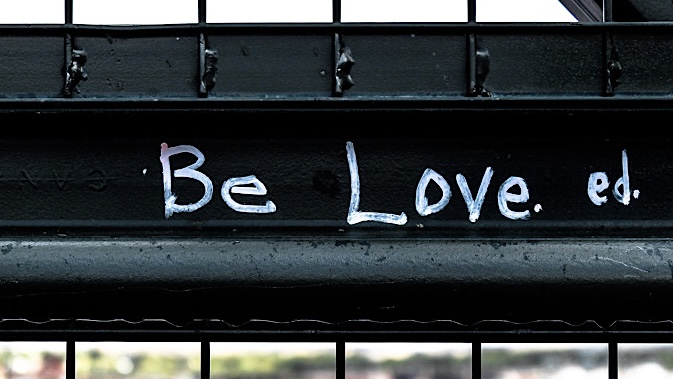 Be Love. ed.